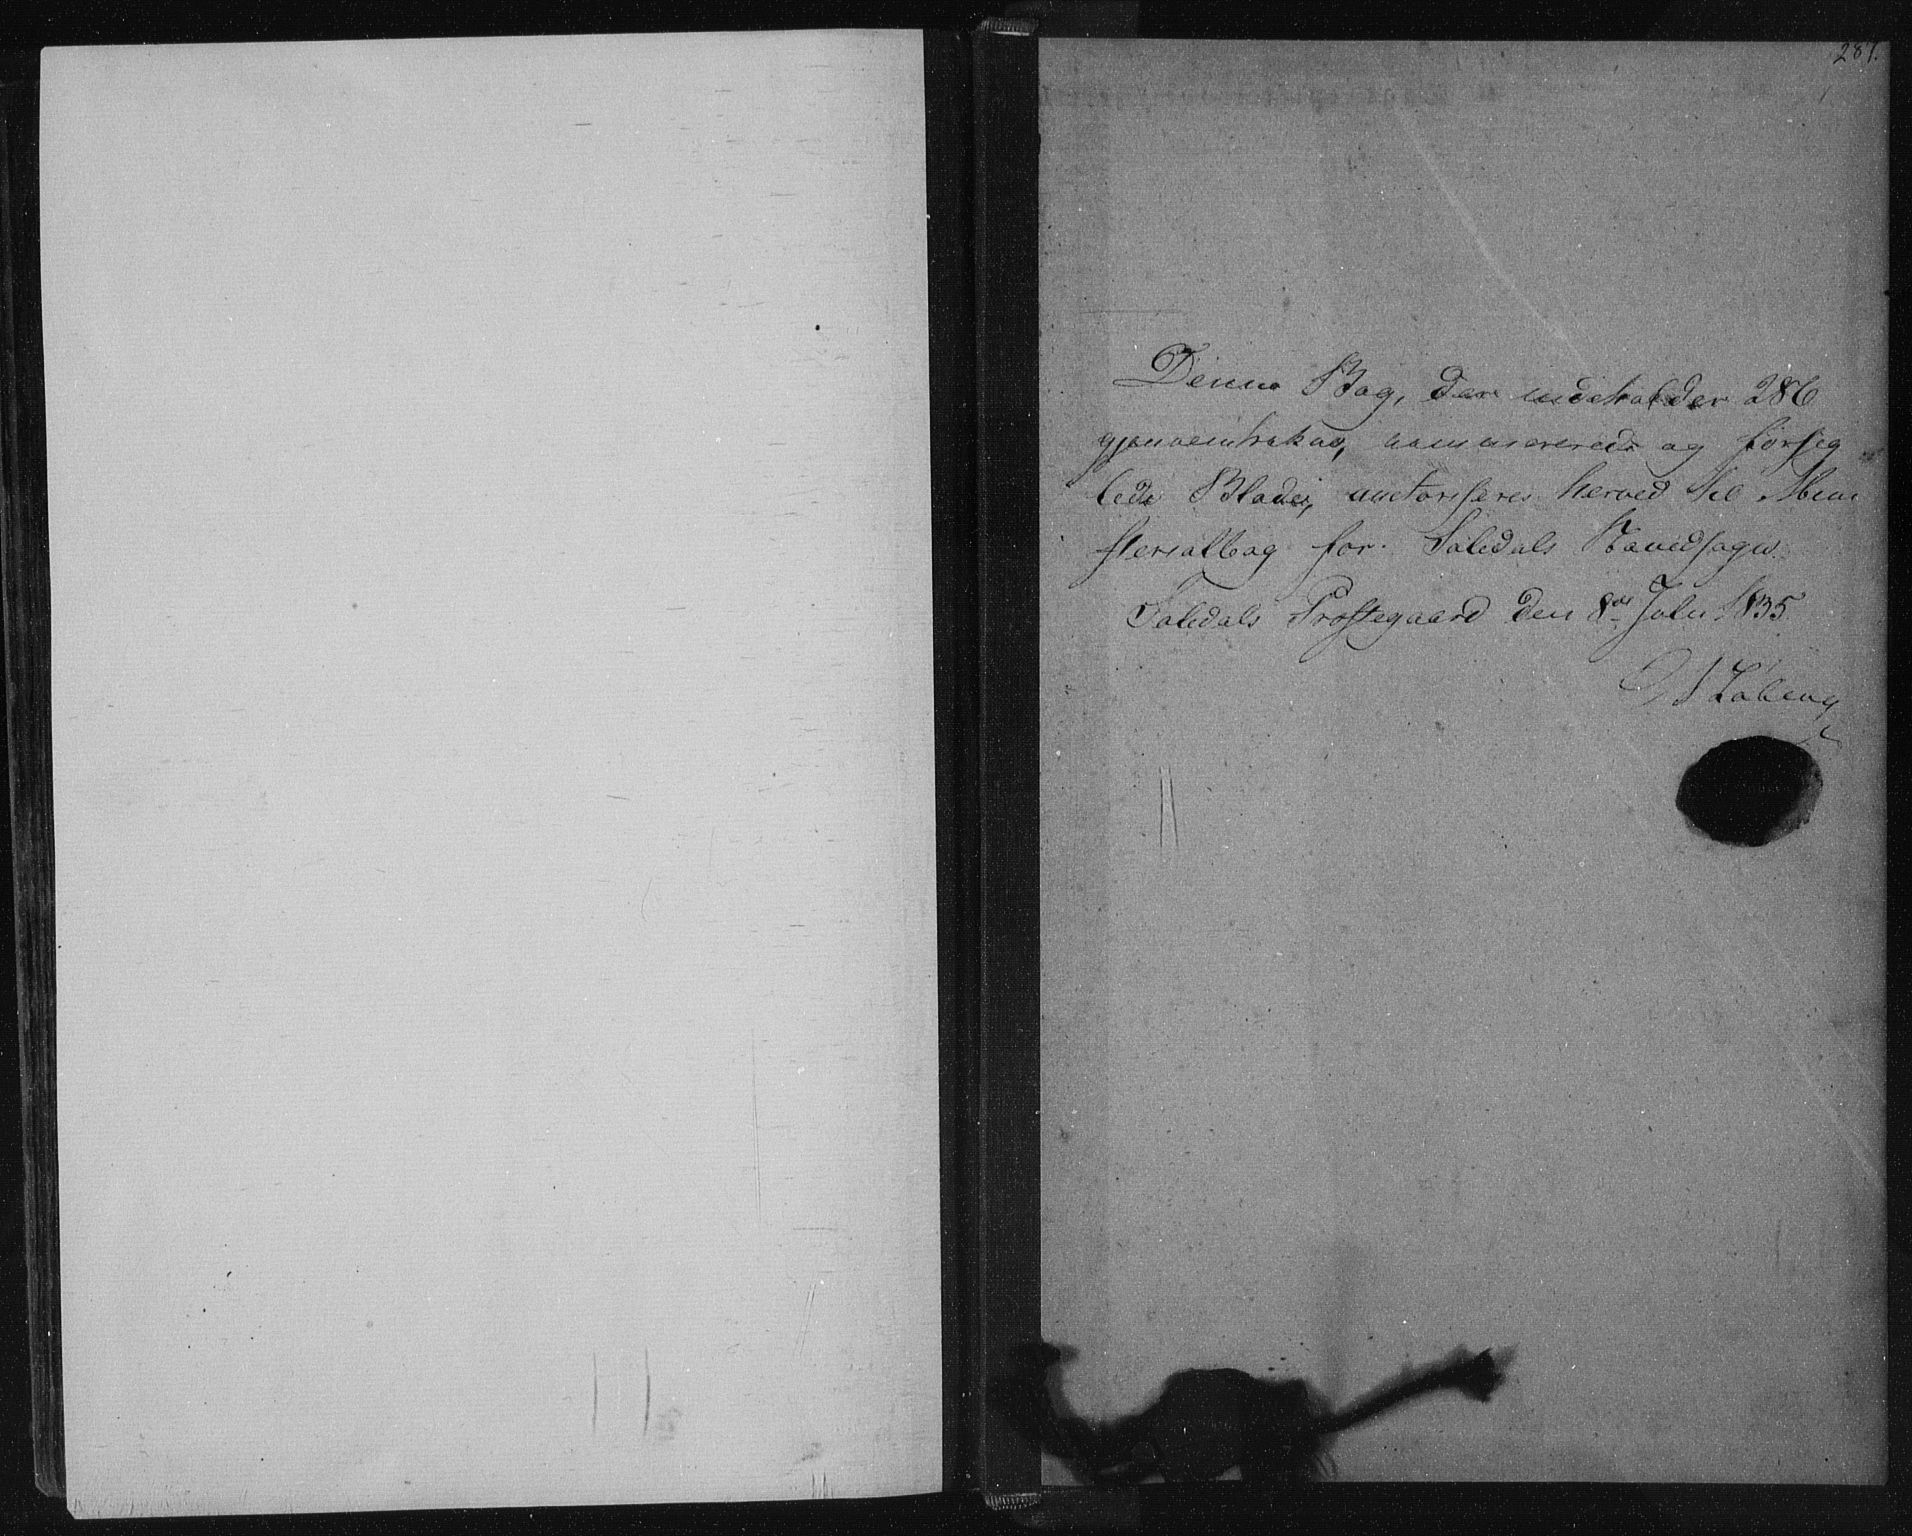 287.
Denne Bog, der indeholder 286
gjennemtrukne, nummererede og forseg
lede Blade, auctoriseres herved til Mini
sterialbog for Soledals Hovedsogn.
Soledals Præstegaard den 8de Juli 1835